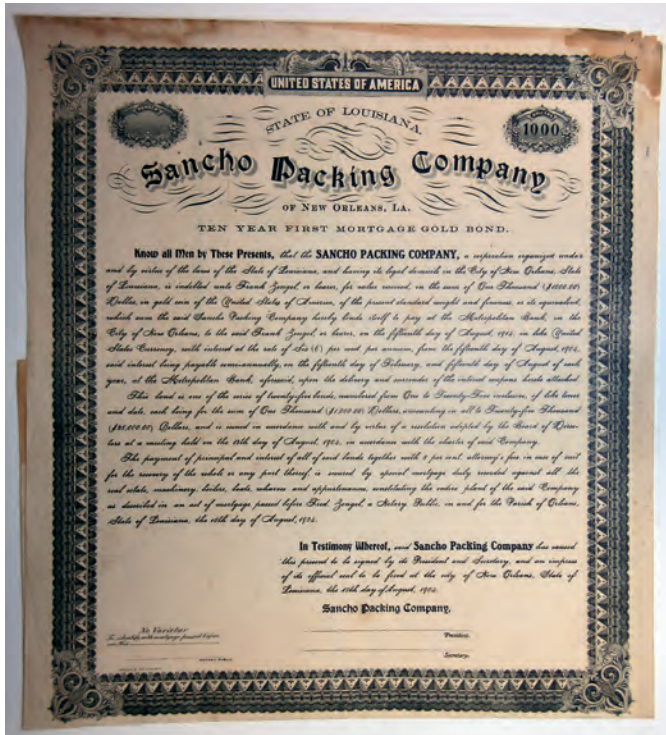 UNITED STATES OF AMERICA
STATE OF LOUISIANA.
1000
Sancho Packing Company
OF NEW ORLEANS, LA.
TEN YEAR FIRST MORTGAGE GOLD BOND.
Know all Men by These Presents, that the SANCHO PACKING COMPANY, a corporation organized under
and by virtue of the laws of the State of Louisiana, and having its legal domicile in the City of New Orleans, State
of Louisiana, is indebted unto Frank Zengel, or bearer, for value received, in the sum of One Thousand ($1000.00)
Dollars, in gold coin of the United States of America, of the present standard weight and fineness, or its equivalent,
which sum the said Sancho Packing Company hereby binds itself to pay at the Metropolitan Bank, in the
City of New Orleans, to the said Frank Zengel, or bearer, on the fifteenth day of August, in like United
States Currency, with interest at the rate of Six (6) per cent per annum, from the fifteenth day of August, 1902,
said interest being payable semi-annually, on the fifteenth day of February, and fifteenth day of August of each
year, at the Metropolitan Bank, aforesaid, upon the delivery and surrender of the interest coupons hereto attached.
This bond is one of the series of Twenty-five bonds, numbered from One to Twenty-Five inclusive, of like tenor
and date, each being for the sum of One Thousand ($1000.00) Dollars, amounting in all to Twenty-five Thousand
($25,000.00) Dollars, and is issued in accordance with and by virtue of a resolution adopted by the Board of Direc-
tors at a meeting held on the day of August, 1902, in accordance with the charter of said Company.
The payment of principal and interest of all of said bonds together with per cent. attorney's fees in case of suit
for the recovery of the whole or any part thereof, is secured by special mortgage duly recorded against all the
real estate, machinery, boilers, boats, wharves and appurtenances, constituting the entire plant of the said Company
as described in an act of mortgage passed before Fred. Zengel, a Notary Public, in and for the Parish of Orleans,
State of Louisiana, the day of August, 1902.
In Testimony Whereof, said Sancho Packing Company has caused
this present to be signed by its President and Secretary, and an impress
of its official seal to be fixed at the city of New Orleans, State of
Louisiana, the day of August, 1902.
Sancho Packing Company.
Ne Varietur
To identify with mortgage passed before
President.
Secretary.
NOTARY PUBLIC.